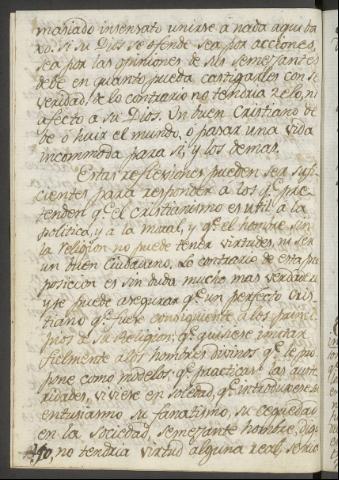 masiado insensato unirse a nada aqui ba
xo. si su Dios se ofende sea por acciones,
sea por las opiniones de sus semejantes
debe en quanto pueda castigarles con se
veridad, de lo contrario no tendria zelo, ni
afecto a su Dios. Un buen Cristiano de
be o huir el mundo, o pasar una vida
incommoda para si, y los demas.
Estas reflexiones pueden ser sufi
cientes para responder a los qe. pre
tenden qe. el cristianismo es util a la
politica, y a la moral, y qe. el hombre sin
la religion no puede tener virtudes, ni ser
un buen Ciudadano. Lo contrario de esta pro
posicion es sin duda mucho mas verdadero
y se puede asegurar qe. un perfecto Cris
tiano qe. fuese consiguiente a los princi
pios de su Religion; qe. quisiese imitar
fielmente a los hombres divinos qe. le pro
pone como modelos; qe. practicase las auste
ridades, viviese en soledad, qe. introduxese su
entusiasmo su fanatismo, su ceguedad
en la Sociedad, semejante hombre, digo
yo, no tendria virtud alguna real, seria